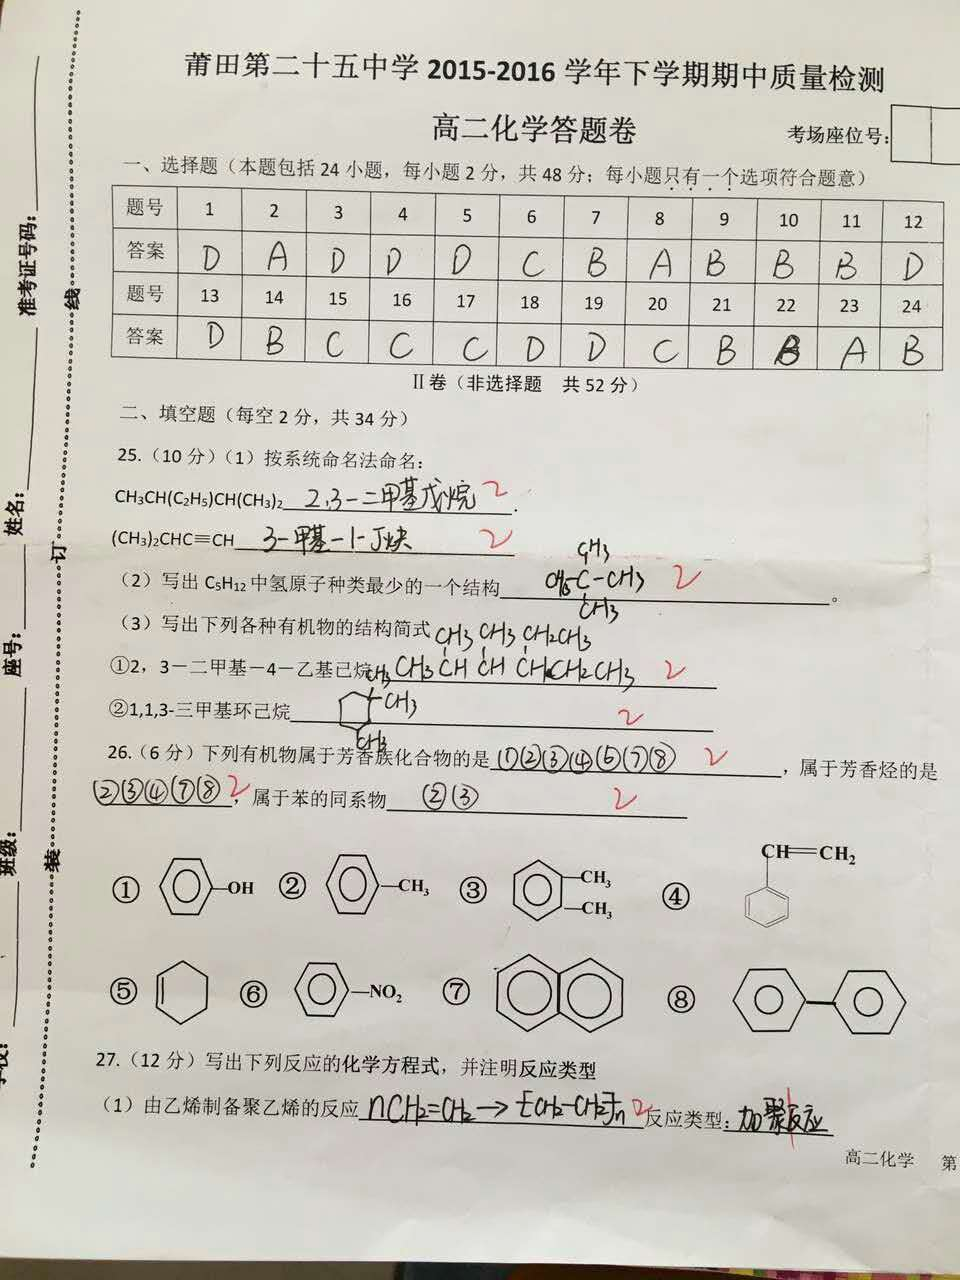 莆田第二十五中学 2015-2016 学年下学期期中质量检测
高二化学答题卷
考场座位号:
一、选择题（本题包括 24 小题，每小题 2 分，共 48 分；每小题只有一个选项符合题意）
题号 1 2 3 4 5 6 7 8 9 10 11 12
答案 D A D D D C B A B B B D
题号 13 14 15 16 17 18 19 20 21 22 23 24
答案 D B C C C D D C B B A B
II卷（非选择题 共 52 分）
二、填空题（每空 2 分，共 34 分）
25.（10 分）（1）按系统命名法命名：
CH₃CH(C₂H₅)CH(CH₃)₂ 2,3-二甲基戊烷 2 .
(CH₃)₂CHC≡CH 3-甲基-1-丁炔 2
CH₃
（2）写出 C₅H₁₂ 中氢原子种类最少的一个结构 CH₃-C-CH₃ 2 。
CH₃
（3）写出下列各种有机物的结构简式 CH₃ CH₃ CH₂CH₃
①2，3－二甲基－4－乙基己烷 CH₃ CH CH CH CH₂ CH₃ 2
CH₃
②1,1,3-三甲基环己烷 CH₃ 2
CH₃
26.（6 分）下列有机物属于芳香族化合物的是 ①②③④⑥⑦⑧ 2 ，属于芳香烃的是
②③④⑦⑧ 2 ，属于苯的同系物 ②③ 2
① OH ② CH₃ ③ CH₃ CH₃ ④ CH=CH₂
⑤ ⑥ NO₂ ⑦ ⑧
27.（12 分）写出下列反应的化学方程式，并注明反应类型
（1）由乙烯制备聚乙烯的反应 nCH₂=CH₂→[CH₂-CH₂]n 2 反应类型: 加聚反应
高二化学 第
准考证号码:
姓名:
座号:
班级:
学校:
线
订
装